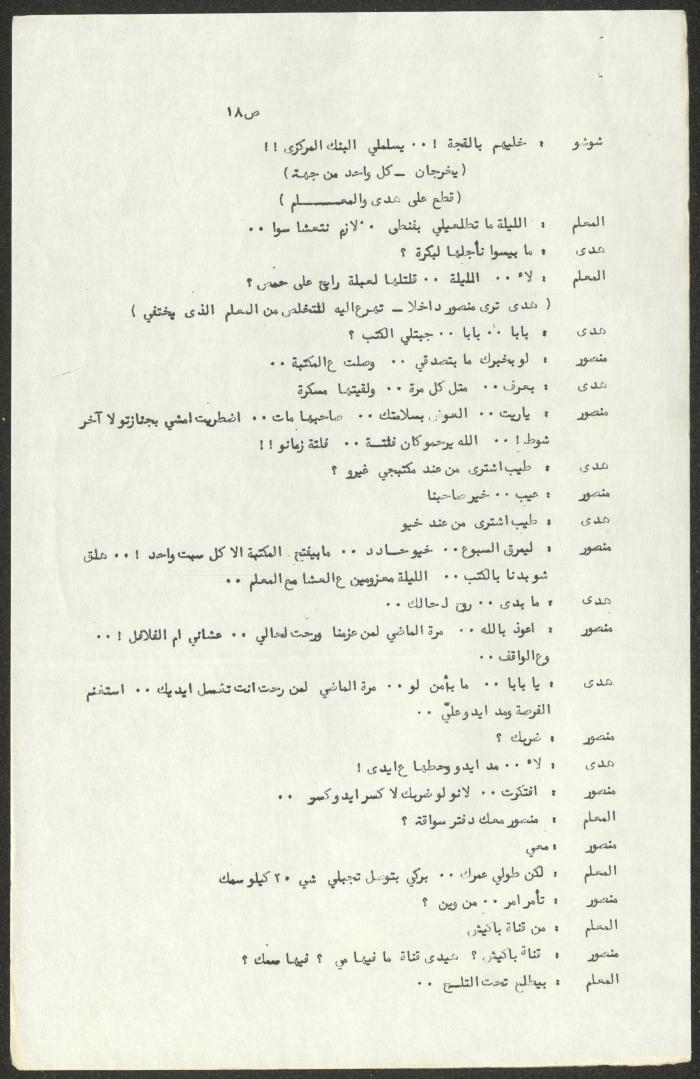 ص١٨
شوشو : خليهم بالقجة ! ٠٠ يسلملي البنك المركزى ! !
( يخرجان ــ كل واحد من جهة )
( قطع على هدى والمعـــــلم )
المعلم : الليلة ما تطلعيلي بفنطى ٠٠ لازم نتعشا سوا ٠٠
هدى : ما بيسوا نأجلها لبكرة ؟
المعلم : لاء ٠٠ الليلة ٠٠ قلتلها لعبلة رايح على حمص ؟
( هدى ترى منصور داخلا ــ تهرع اليه للتخلص من المعلم الذى يختفي )
هدى : بابا ٠٠ بابا ٠٠ جبتلي الكتب ؟
منصور : لو بخبرك ما بتصدقي ٠٠ وصلت ع المكتبة ٠٠
هدى : بعرف ٠٠ متل كل مرة ٠٠ ولقيتها مسكرة
منصور : ياريت ٠٠ العوض بسلامتك ٠٠ صاحبها مات ٠٠ اضطريت امشي بجنازتو لا آخر
شوط ! ٠٠ الله يرحمو كان فلتـــة ٠٠ فلتة زمانو ! !
هدى : طيب اشترى من عند مكتبجي غيرو ؟
منصور : عيب ٠٠ خير صاحبنا
هدى : طيب اشترى من عند خيو
منصور : ليمرق السبوع ٠٠ خيو حـــادد ٠٠ مابيفتح المكتبة الا كل سبت واحد ! ٠٠ هلق
شو بدنا بالكتب ٠٠ الليلة معزومين ع العشا مع المعلم ٠٠
هدى : ما بدى ٠٠ روح لحالك ٠٠
منصور : اعوذ بالله ٠٠ مرة الماضي لمن عزمنا ورحت لحالي ٠٠ عشاني ام الفلافل ! ٠٠
وع الواقف ٠٠
هدى : يا بابا ٠٠ ما بأمن لو ٠٠ مرة الماضي لمن رحت انت تغسل ايديك ٠٠ استغنم
الفرصة ومد ايدو عليّ ٠٠
منصور : ضربك ؟
هدى : لاء ٠٠ مد ايدو وحطها ع ايدى !
منصور : افتكرت ٠٠ لانو لو ضربك لا كسر ايدو كسر ٠٠
المعلم : منصور معك دفتر سواقة ؟
منصور : معي
المعلم : لكن طولي عمرك ٠٠ بركي بتوصل تجبلي شي ٢٠ كيلو سمك
منصور : تأمر امر ٠٠ من وين ؟
المعلم : من قناة باكيش
منصور : قناة باكيش ؟ هيدى قناة ما فيها مي ؟ فيها سمك ؟
المعلم : بيطلع تحت التلـــج ٠٠